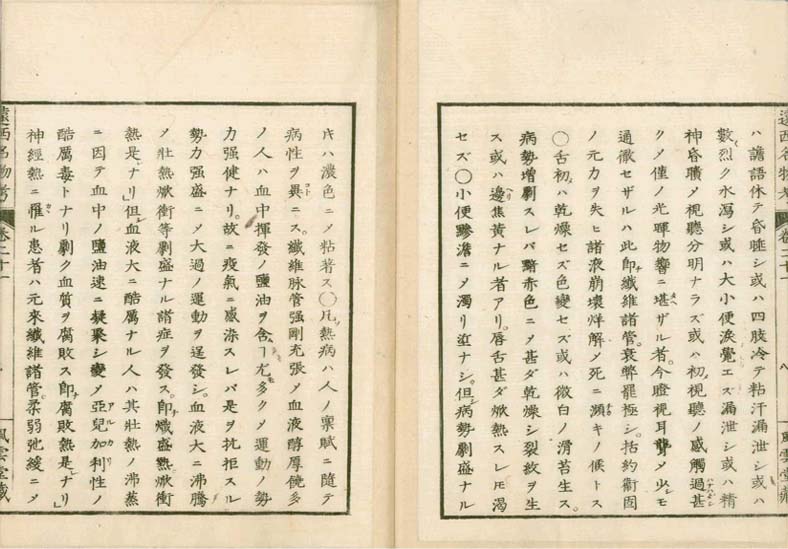 遠西名物考 卷二十一 八 風雲堂藏
ハ譫語休テ昏睡シ或ハ四肢冷テ粘汗漏泄シ或ハ
數烈ク水瀉シ或ハ大小便涙覺エズ漏泄シ或ハ精
神昏曠〆視聽分明ナラズ或ハ初視聽ノ感觸過甚
クメ僅ノ光暉物響ニ堪ザル者今瞪視耳聾〆少モ
通徹セザルハ此卽纖維諸管衰弊罷極シ括約衞固
ノ元力ヲ失ヒ諸液崩壞烊解〆死ニ瀕キノ候トス
〇舌初ハ乾燥セズ色變セズ或ハ微白ノ滑苔生ス
病勢增劇スレバ黯赤色ニ〆甚ダ乾燥シ裂紋ヲ生
ス或ハ邊焦黄ナル者アリ。唇舌甚ダ焮熱スレモ渴
セズ〇小便黲澹ニ〆濁リ塗ナシ。但病勢劇盛ナル
片ハ濃色ニ〆粘著ス〇凡熱病ハ人ノ稟賦ニ隨テ
病性ヲ異ニス。纖維脉管强剛充張〆血液醇厚饒多
ノ人ハ血中揮發ノ鹽油ヲ含ヿ尤多ク〆運動ノ勢
力强健ナリ。故ニ疫氣ニ感染スレバ是ヲ抗拒スル
勢力强盛ニ〆大過ノ運動ヲ逞發シ。血液大ニ沸騰
〆壯熱焮衝等劇盛ナル諸症ヲ發ス。卽熾盛熱焮衝
熱是ナリ」但血液大ニ酷厲ナル人ハ其壯熱ノ沸蒸
ニ因テ血中ノ鹽油速ニ凝聚シ變〆亞兒加利性ノ
酷厲毒トナリ劇ク血質ヲ腐敗ス卽腐敗熱是ナリ」
神經熱ニ罹ル患者ハ元來纖維諸管柔弱弛緩ニ〆
遠西名物考 卷二十一 風雲堂藏